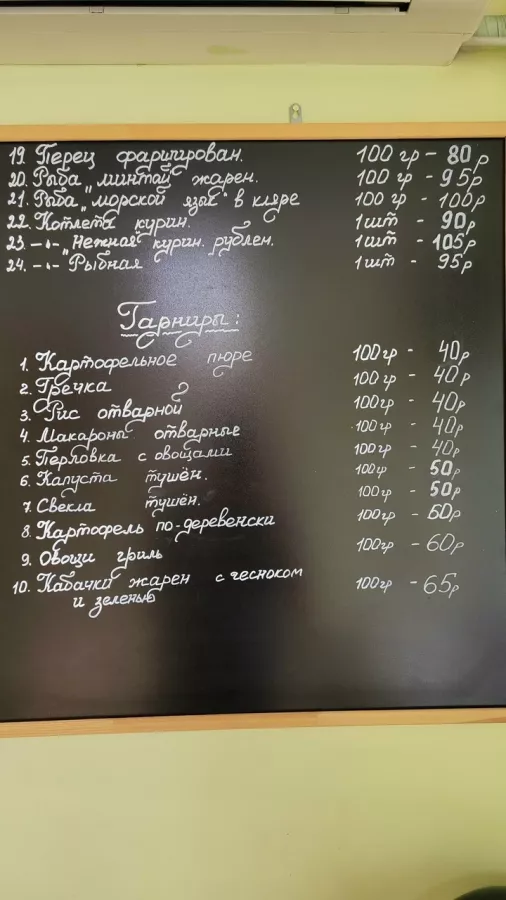 19. Перец фарширован. 100 гр - 80 р
20. Рыба „минтай" жарен. 100 гр - 95 р
21. Рыба „морской язык" в кляре 100 гр - 100 р
22. Котлета курин. 1 шт - 90 р
23. -"- „Нежная" курин. рублен. 1 шт - 105 р
24. -"- Рыбная 1 шт - 95 р
Гарниры:
1. Картофельное пюре 100 гр - 40 р
2. Гречка 100 гр - 40 р
3. Рис отварной 100 гр - 40 р
4. Макароны отварные 100 гр - 40 р
5. Перловка с овощами 100 гр - 40 р
6. Капуста тушён. 100 гр - 50 р
7. Свекла тушён. 100 гр - 50 р
8. Картофель по-деревенски 100 гр - 60 р
9. Овощи гриль 100 гр - 60 р
10. Кабачки жарен с чесноком 100 гр - 65 р
и зеленью